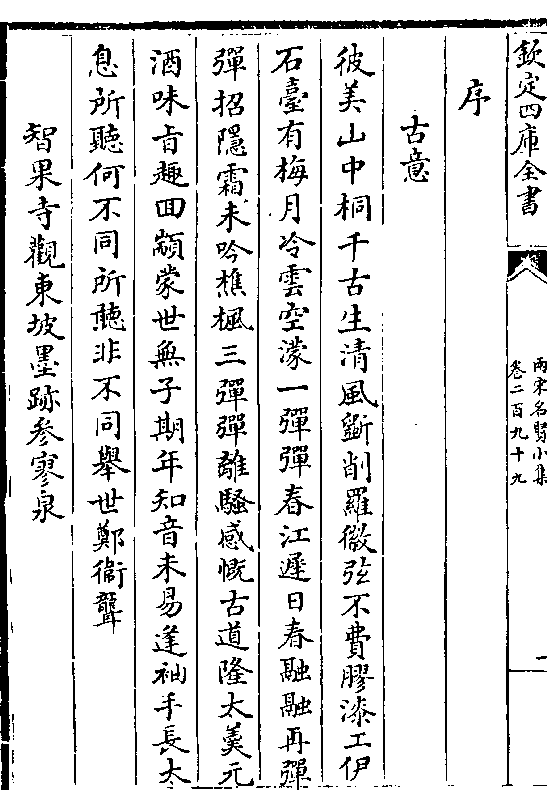 欽定四庫全書
兩宋名賢小集
卷二百九十九
一
序
古意
彼美山中桐千古生清風斵削羅徽弦不費膠漆工伊
石臺有梅月冷雲空濛一彈彈春江遲日春融融再彈
彈招隱霜未吟樵楓三彈彈離騷感慨古道隆太羮元
酒味旨趣回顓蒙世無子期年知音未易逢袖手長太
息所聽何不同所聽非不同舉世鄭衞聾
智果寺觀東坡墨跡參寥泉